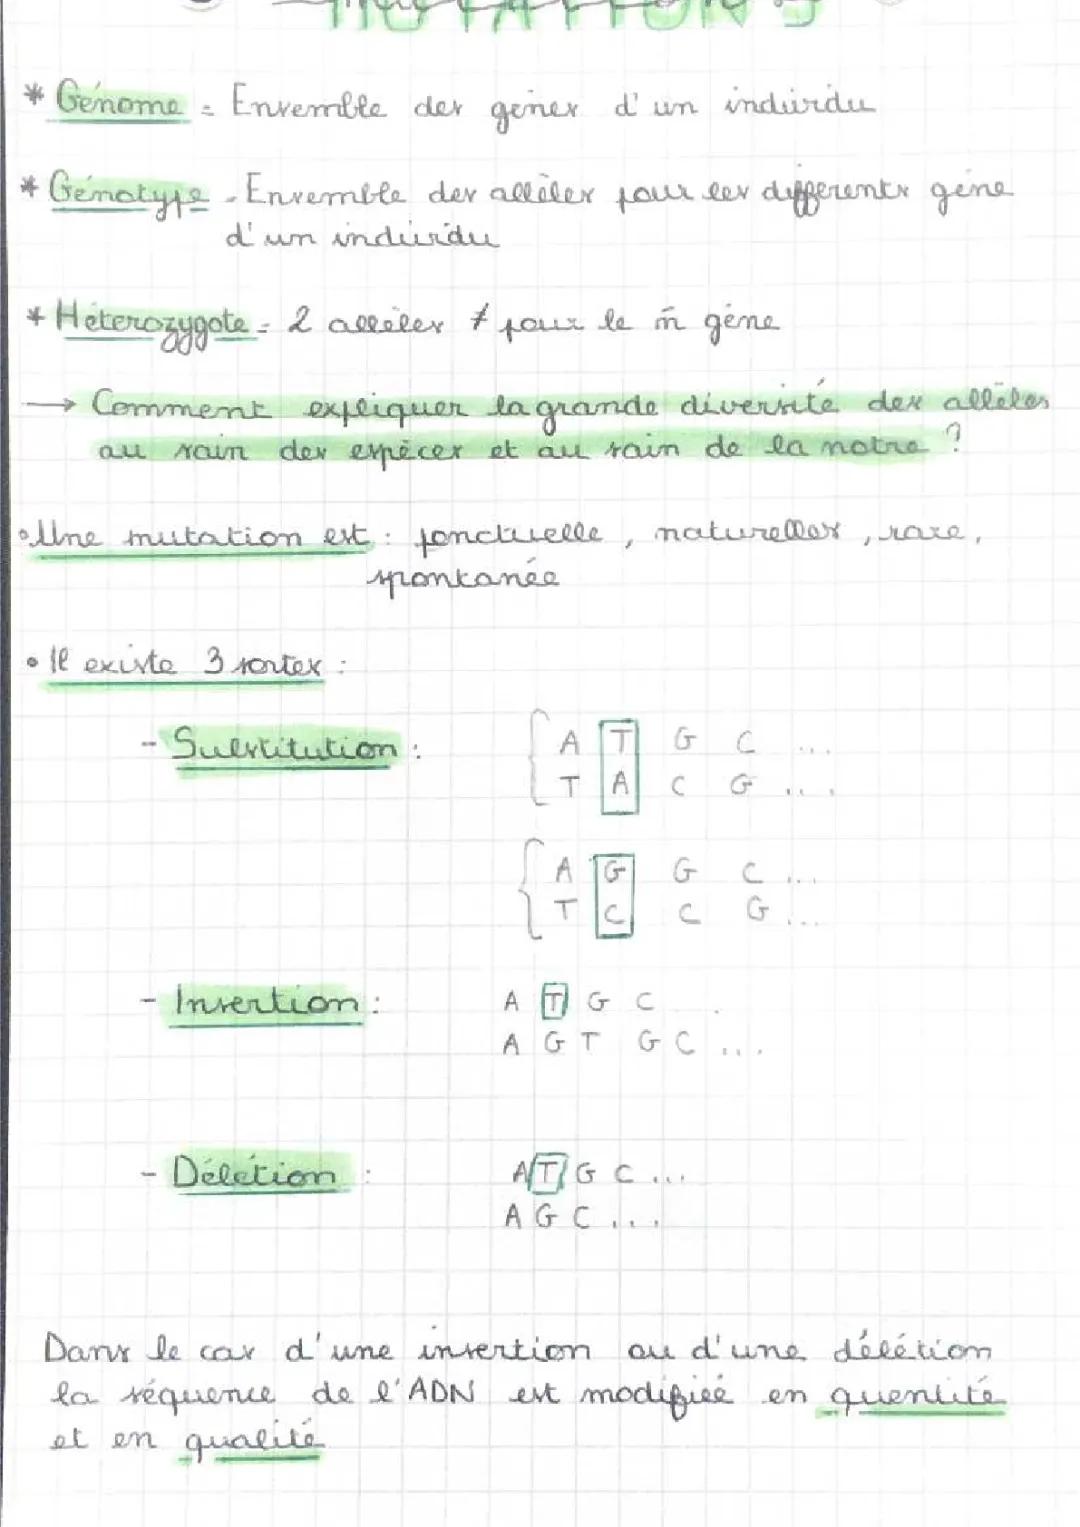 MUTATIONS
* Génome = Ensemble des gènes d'un individu
* Génotype = Ensemble des allèles pour les différents gène
d'un individu
* Hétérozygote = 2 allèles ≠ pour le m̂ gène
→ Comment expliquer la grande diversité des allèles
au sein des espèces et au sein de la notre ?
• Une mutation est : ponctuelle, naturelles, rare,
spontanée
• Il existe 3 sortes :
- Substitution : A T G C ...
T A C G ....
A G G C ...
T C C G ...
- Insertion : A T G C .
A G T G C ...
- Délétion : A T G C ...
A G C ...
Dans le cas d'une insertion ou d'une délétion
la séquence de l'ADN est modifieé en quentité
et en qualité